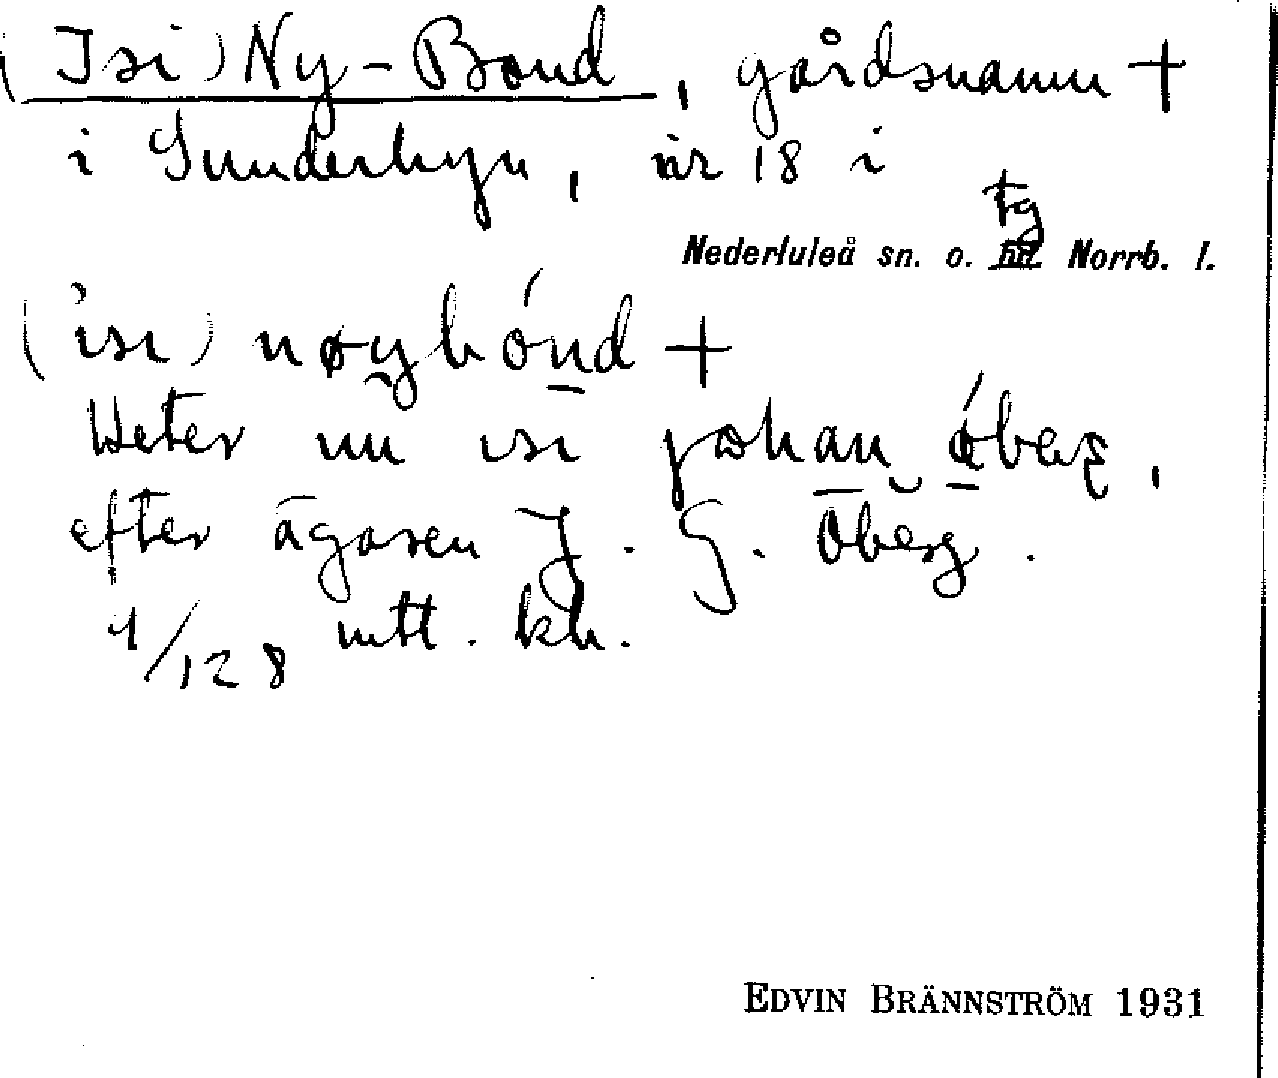 (Isi) Ny-Bond, gårdsnamn +
i Sunderbyn, nr 18 i
tg
Nederluleå sn. o. hd. Norrb. l.
(isi) nøybónd +
Heter nu isi johan óberg,
efter ägaren J. G. Öberg.
1/128 mtl. kh.
EDVIN BRÄNNSTRÖM 1931